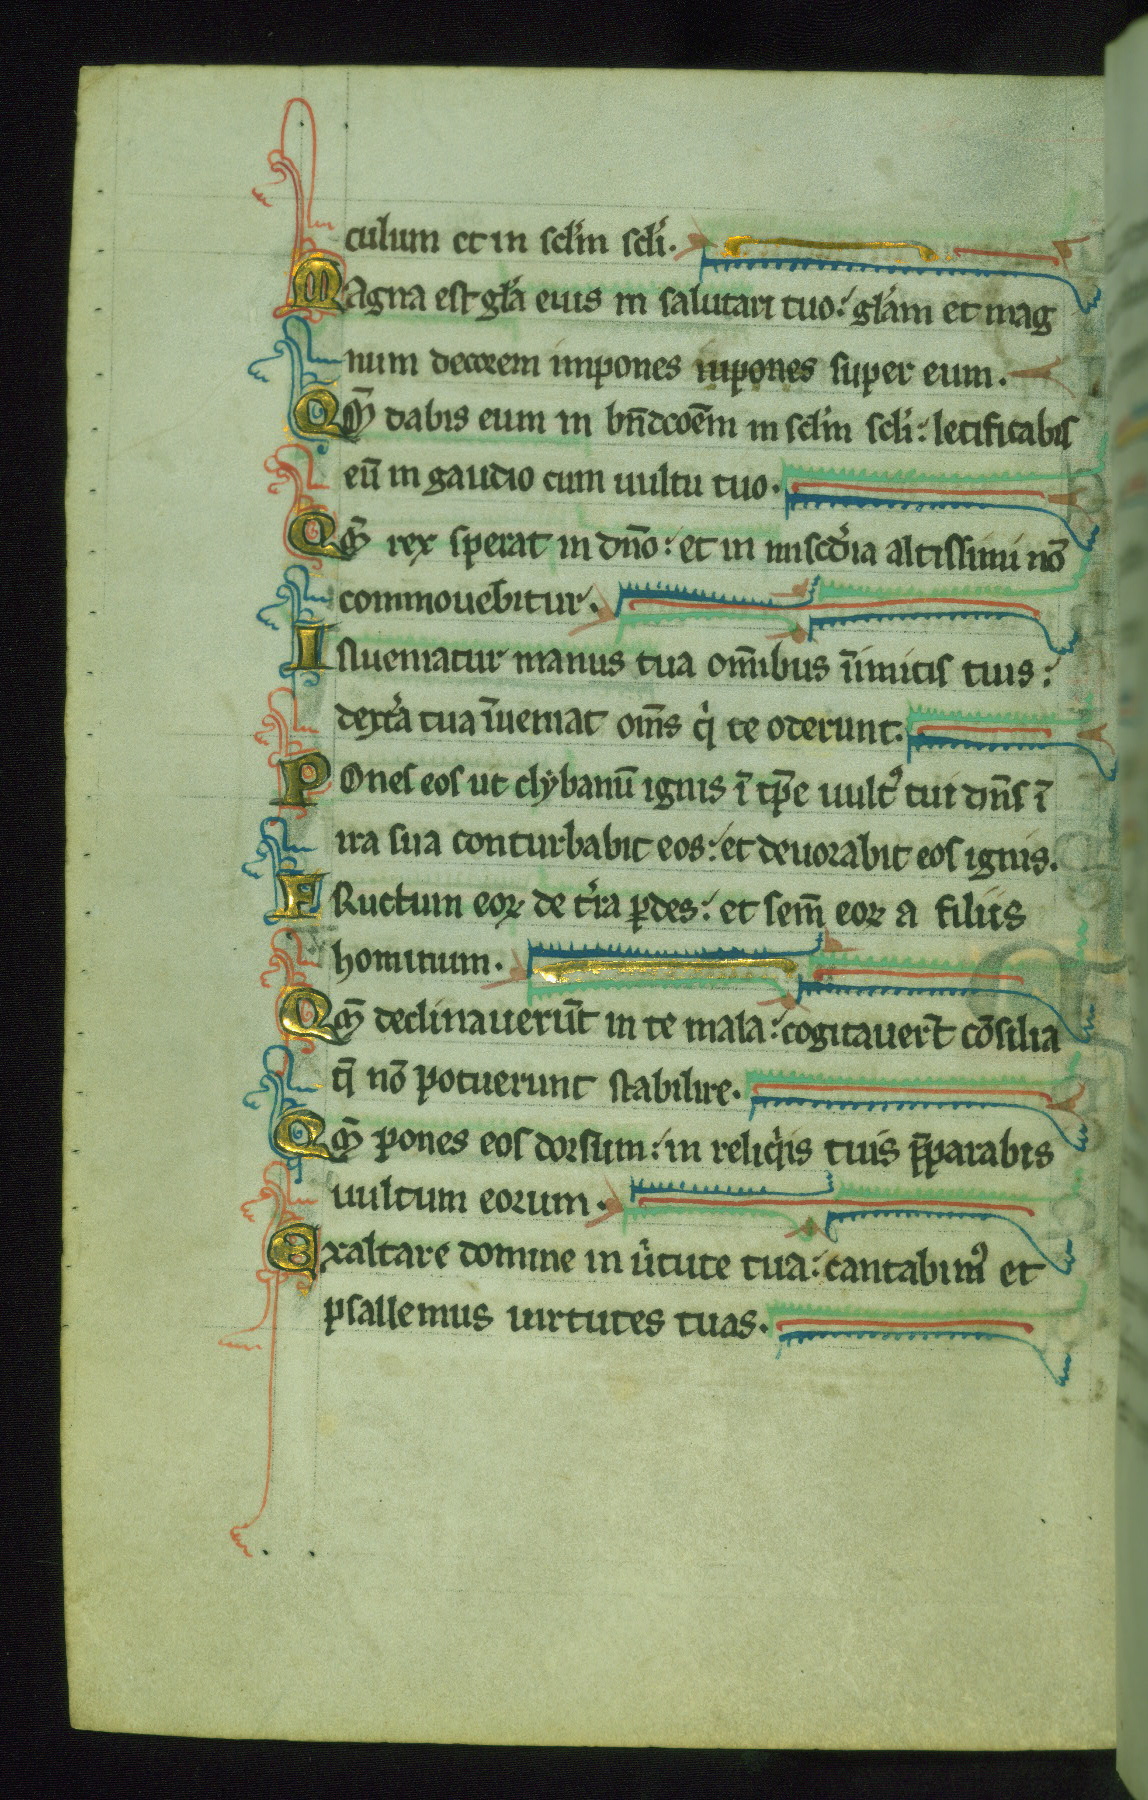 culum et in sclm̄ scli.
MAgna est gl̄a eius in salutari tuo: gl̄am et mag
num decorem impones inpones super eum.
Qm̄ dabis eum in bn̄dcōem in sclm̄ scli: letificabis
eū in gaudio cum uultu tuo.
Qm̄ rex sperat in dn̄o: et in miscd̄ia altissimi nō
commouebitur.
INueniatur manus tua om̄ibus īimicis tuis:
dext̄a tua īueniat om̄s q̇ te oderunt.
POnes eos ut clybanū ignis ī tp̄e uult᾽ tui dn̄s ī
ira sua conturbabit eos: et deuorabit eos ignis.
FRuctum eoꝝ de t̄ra ꝑdes: et sem̄ eoꝝ a filiis
hominum.
Qm̄ declinauerūt in te mala: cogitauer̄t cōsilia
q̄ nō potuerunt stabilire.
Qm̄ pones eos dorsum: in reliqis tuis p̄parabis
uultum eorum.
Exaltare domine in u̇tute tua: cantabim᾽ et
psallemus uirtutes tuas.